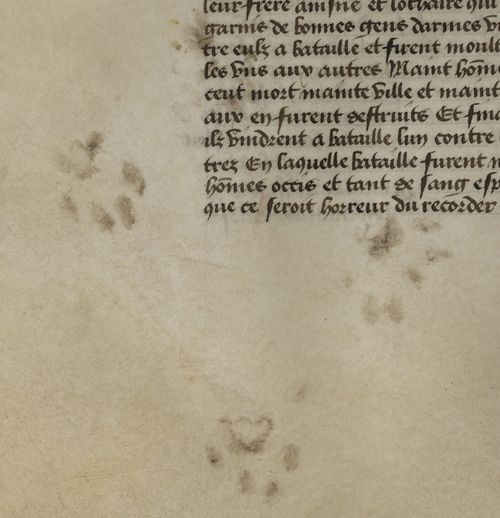 leur frere aisne et lothaire qui
garnis de bonnes gens darmes vi
tre eulz a bataille et firent moult
les vns aux autres Maint hōme
ceut mort mainte ville et maint
aux en furent destruits Et fina
ilz vindrent a bataille lun contre
trez En laquelle bataille furent
hōmes occis et tant de sang esp
que ce seroit horreur du recorder